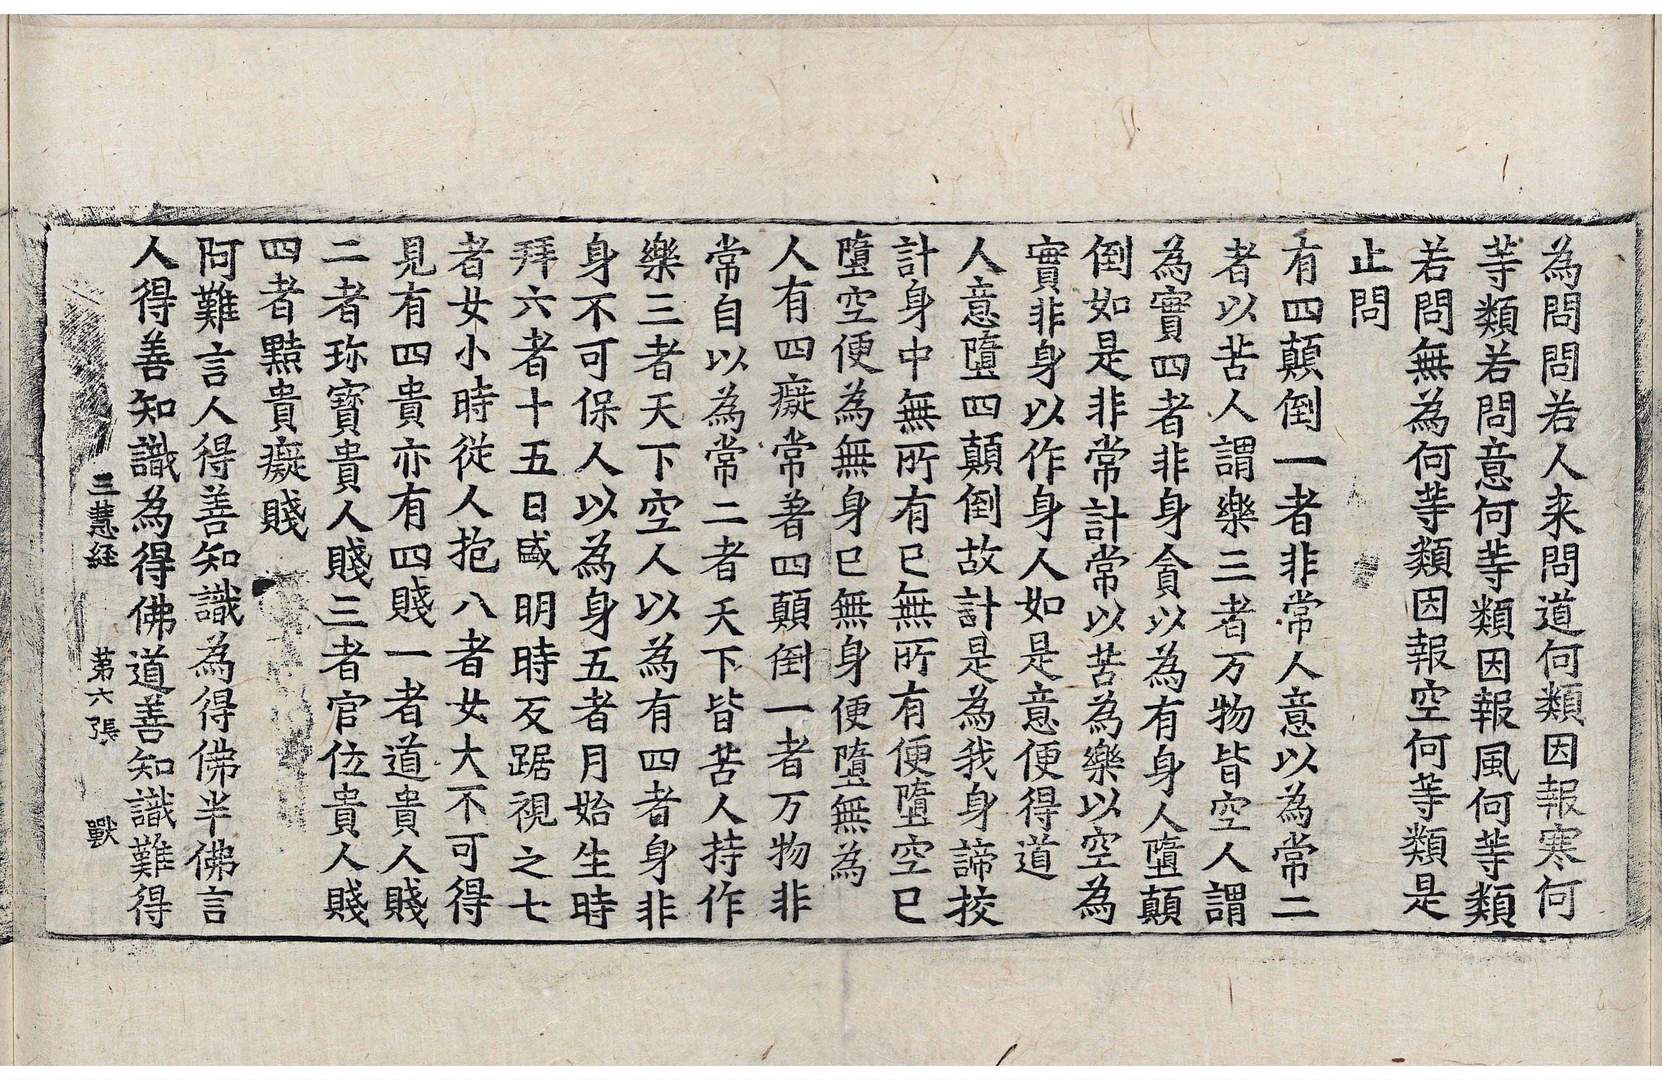 為問問若人来問道何類因報寒何
等類若問意何等類因報風何等類
若問無為何等類因報空何等類是
止問
有四顛倒一者非常人意以為常二
者以苦人謂樂三者万物皆空人謂
為實四者非身貪以為有身人墮顛
倒如是非常計常以苦為樂以空為
實非身以作身人如是意便得道
人意墮四顛倒故計是為我身諦挍
計身中無所有已無所有便墮空已
墮空便為無身已無身便墮無為
人有四癡常著四顛倒一者万物非
常自以為常二者天下皆苦人持作
樂三者天下空人以為有四者身非
身不可保人以為身五者月始生時
拜六者十五日盛明時反踞視之七
者女小時從人抱八者女大不可得
見有四貴亦有四賤一者道貴人賤
二者珎寶貴人賤三者官位貴人賤
四者黠貴癡賤
阿難言人得善知識為得佛半佛言
人得善知識為得佛道善知識難得
三慧経 第六張 獸